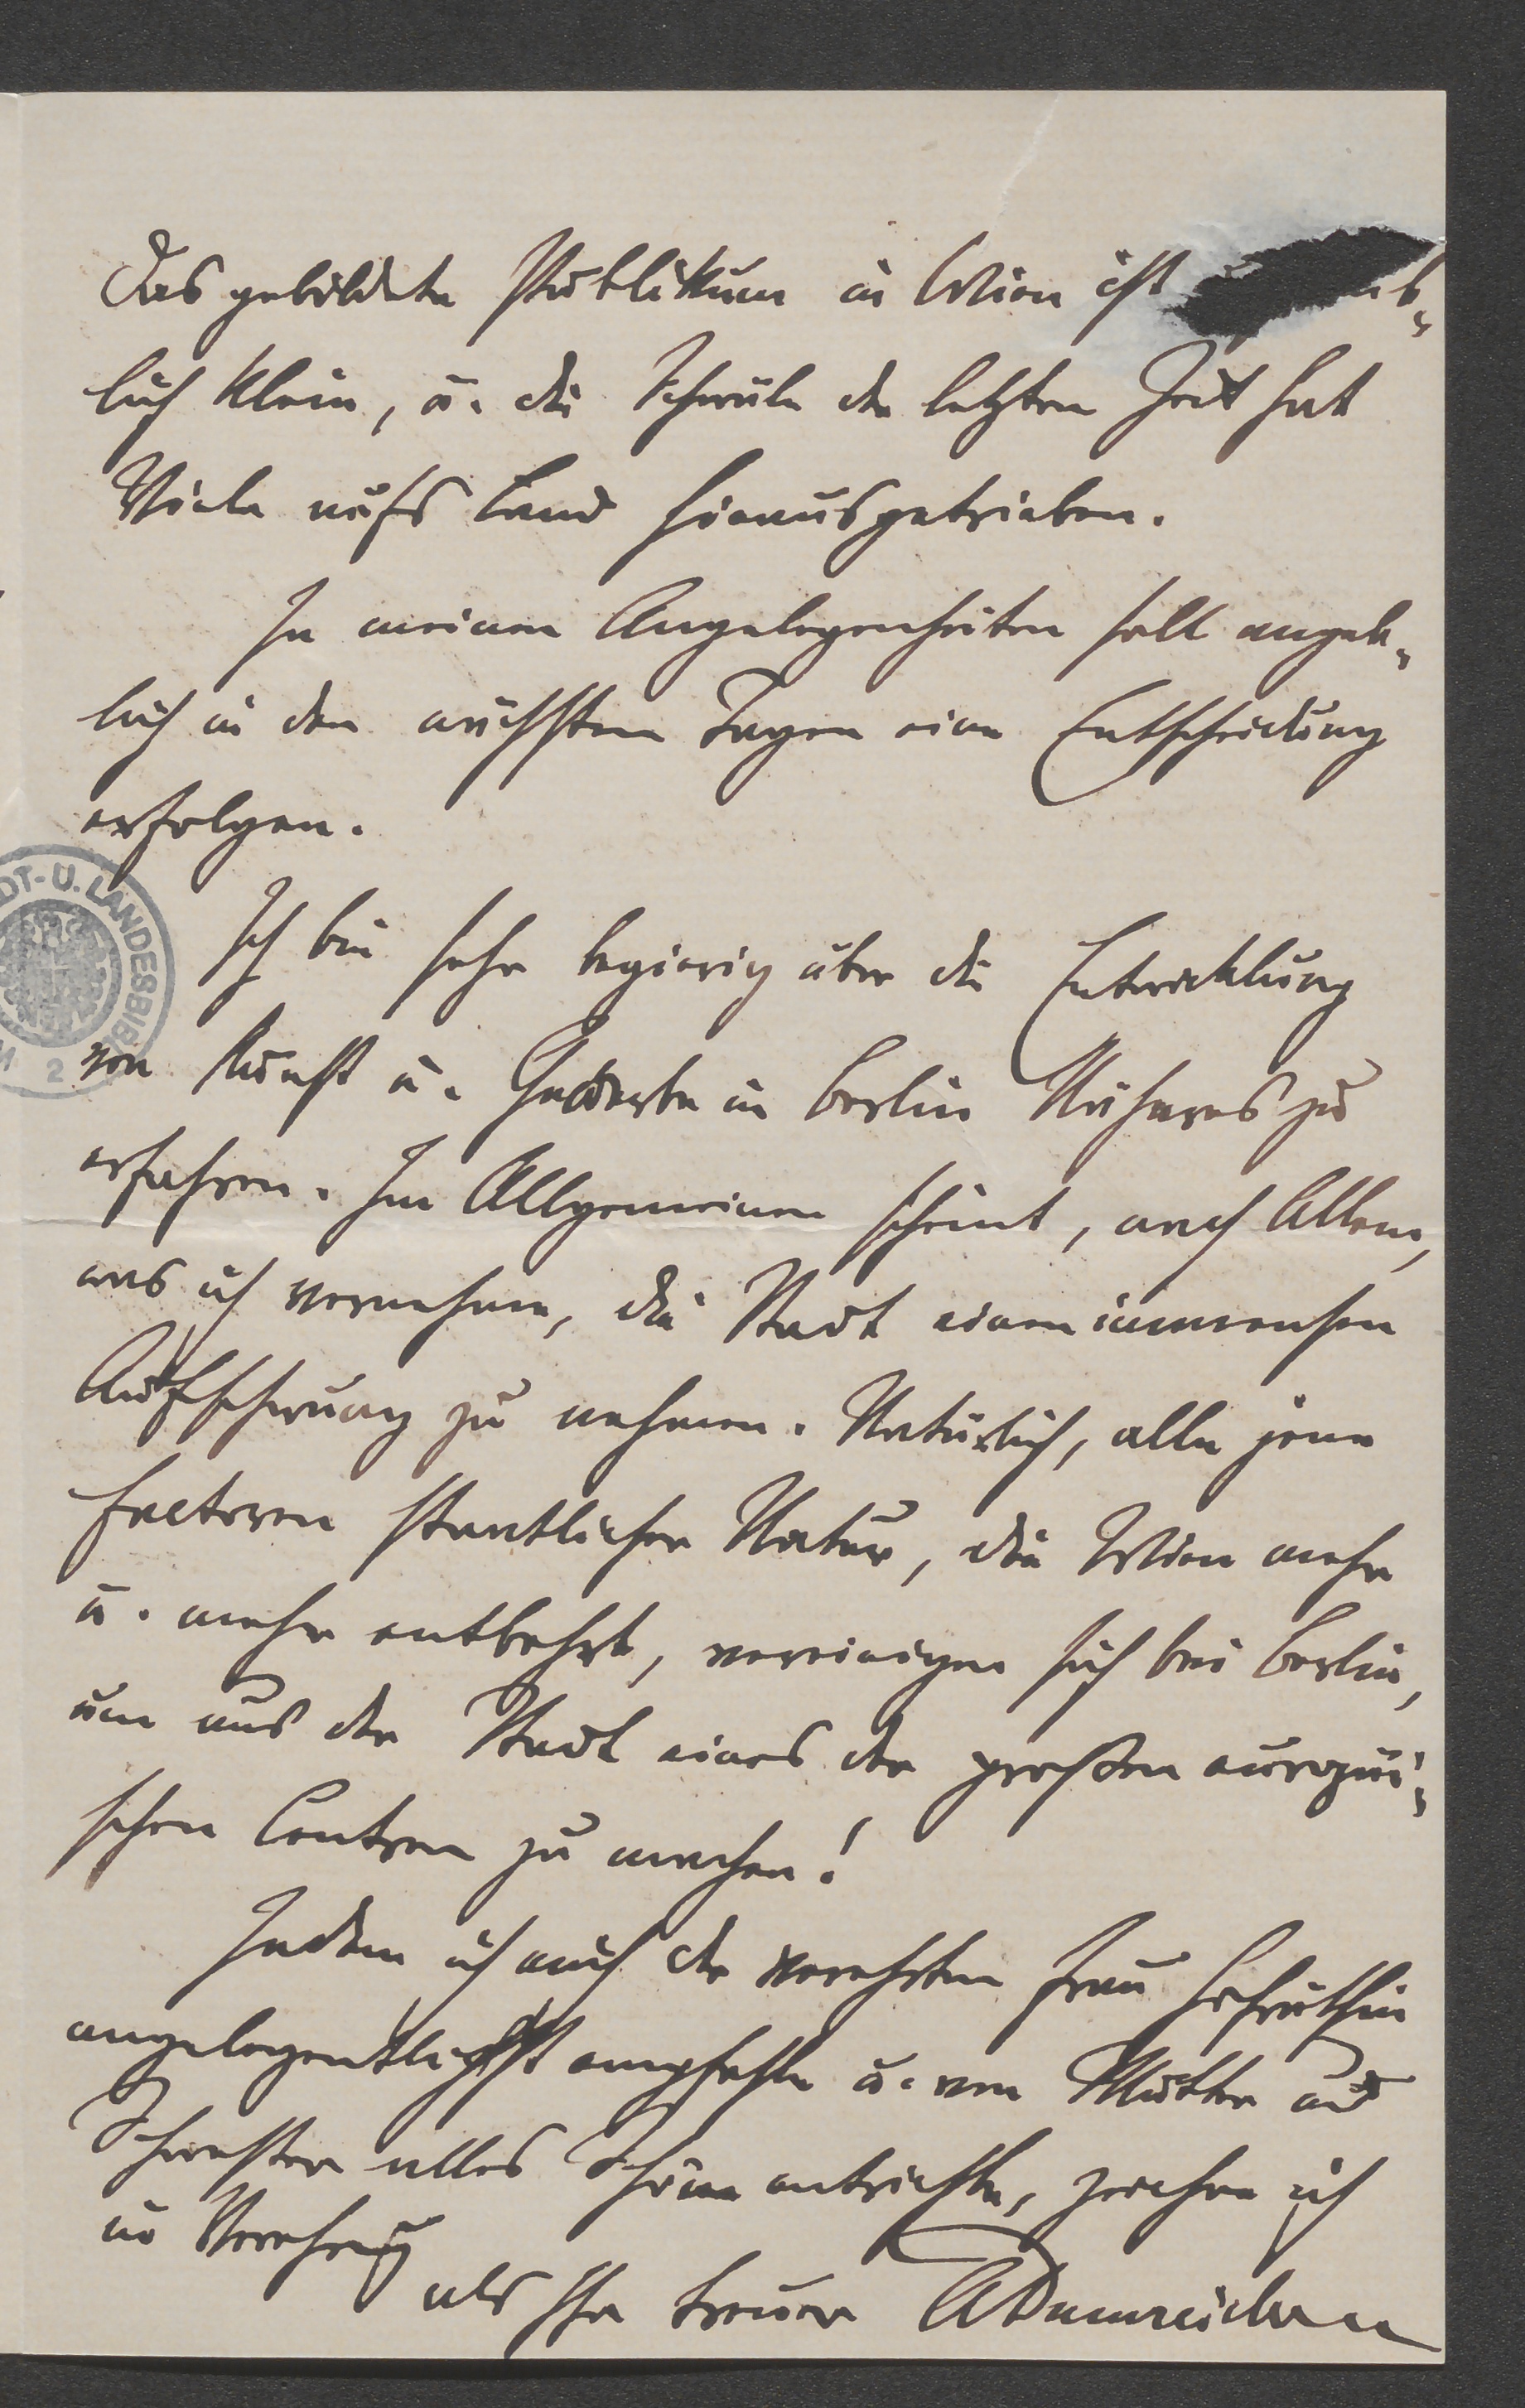 Das gebildete Publikum in Wien ist
lich klein, u. die Schwüle der letzten Zeit hat
Viele aufs Land hinausgetrieben.
In meinen Angelegenheiten soll angeb-
lich in den nächsten Tagen eine Entscheidung
erfolgen.
Ich bin sehr begierig über die Entwicklung
von Kunst u. Gewerbe in Berlin Näheres zu
erfahren. Im Allgemeinen scheint, nach Allem,
was ich vernehme, die Stadt einen immensen
Aufschwung zu nehmen. Natürlich, alle jene
Factoren staatlicher Natur, die Wien mehr
u. mehr entbehrt, vereinigen sich bei Berlin,
um aus der Stadt eines der großen europäi-
schen Centren zu machen!
Indem ich mich der verehrten Frau Hofräthin
angelegentlichst empfehle u. von Mutter und
Schwester alles Schöne entrichte, zeichne ich
in Verehrung
als Ihr treuer
DT- U. LANDESBIBL
2